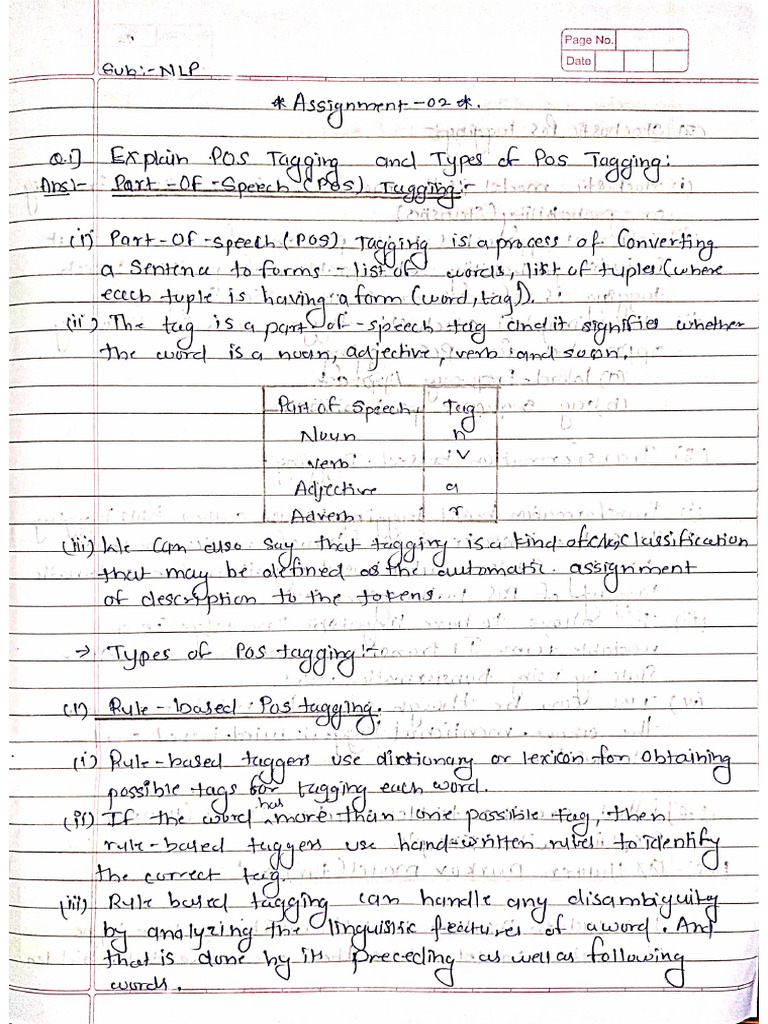 Page No.
Date
Sub:- NLP
* Assignment - 02 *.
Q.1] Explain POS Tagging and Types of POS Tagging:
Ans:- Part-Of-Speech (POS) Tagging:-
(i) Part-Of-Speech (POS) Tagging is a process of Converting
a Sentence to forms - list of words, list of tuples (where
each tuple is having a form (word, tag)).
(ii) The tag is a part-of-speech tag and it signifies whether
the word is a noun, adjective, verb and soon.
Part of Speech Tag
Noun n
verb v
Adjective a
Adverb r
(iii) We can also say that tagging is a kind of Classification
that may be defined as the automatic assignment
of description to the tokens.
→ Types of POS tagging:-
(1) Rule-based Pos tagging:
(i) Rule-based taggers use dictionary or lexicon for obtaining
possible tags for tagging each word.
(ii) If the word has more than one possible tag, then
rule-based taggers use hand-written rules to identify
the correct tag.
(iii) Rule based tagging can handle any disambiguity
by analyzing the linguistic features of a word. And
that is done by its preceding as well as following
words.